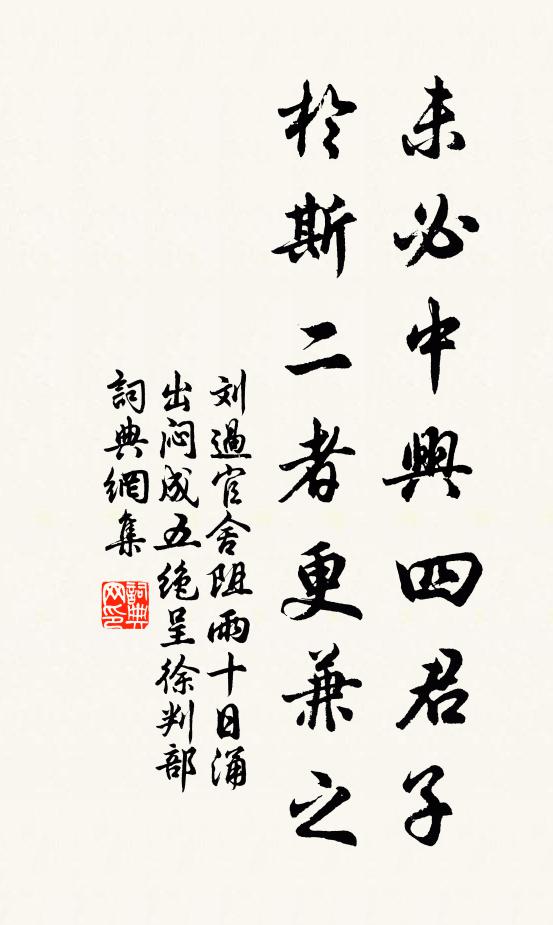 未必中興四君子
於斯二者更兼之
刘過官舍阻雨十日涌
出闷成五绝呈徐判部
詞典網集
詞典网印